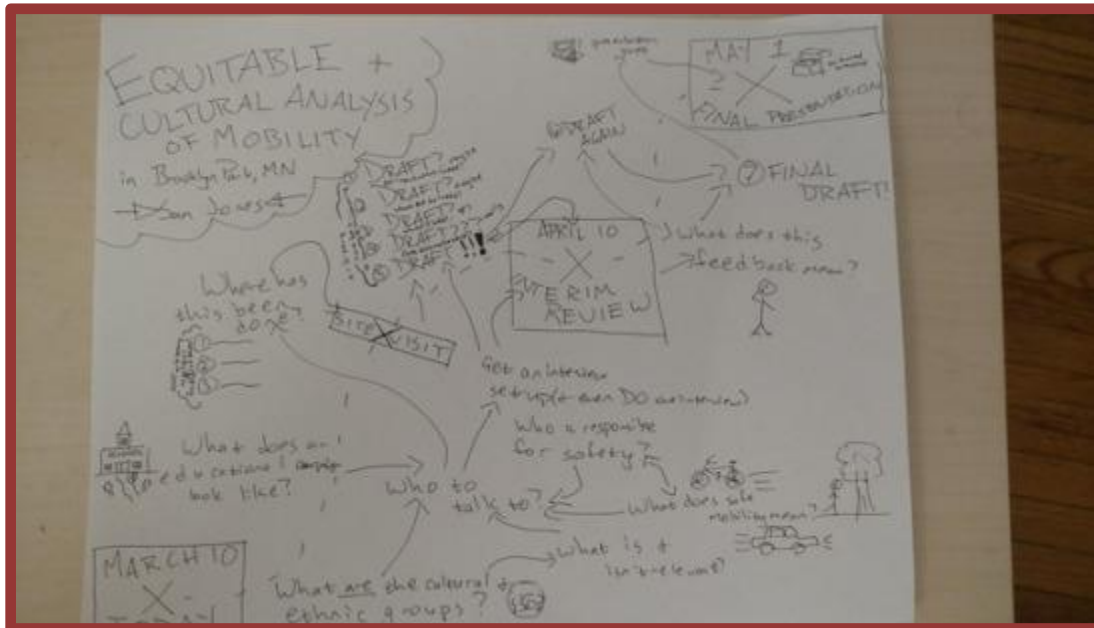 EQUITABLE +
CULTURAL ANALYSIS
OF MOBILITY
in Brooklyn Park, MN
Dan Jones
MAY 1
FINAL PRESENTATION
⑥ DRAFT
AGAIN
⑦ FINAL
DRAFT!
DRAFT?
DRAFT?
DRAFT?
DRAFT??
DRAFT!!!
APRIL 10
INTERIM
REVIEW
What does this
feedback mean?
Where has
this been
done?
①
②
③
SITE VISIT
Get an interview
set up (+ even DO an interview)
Who is responsible
for safety?
What does an
educational
look like?
Who to
talk to?
What does safe
mobility mean?
What is +
isn't relevant?
MARCH 10
TODAY
What are the cultural +
ethnic groups?